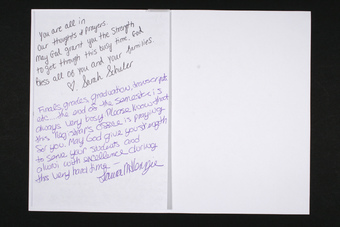 You are all in
our thoughts & prayers.
May God grant you the strength
to get through this busy time. God
bless all of you and your families.
♡ Sarah Schuler
Finals, grades, graduation, transcripts
etc... the end of the semester is
always very busy! Please know that
this office is praying
for you. May God give you strength
to serve your students and
with excellence during
this very hard time —
Laura